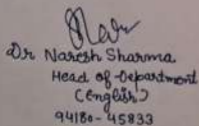 Dr Naresh Sharma
Head of Department
(English)
94180-45833